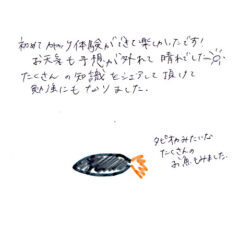 初めて体験ができて楽しかったです!
お天気も予想が外れて晴れでした
たくさんの知識をシェアして頂けて
勉強にもなりました。
タピオカみたいな
たくさんの
お魚もみました。